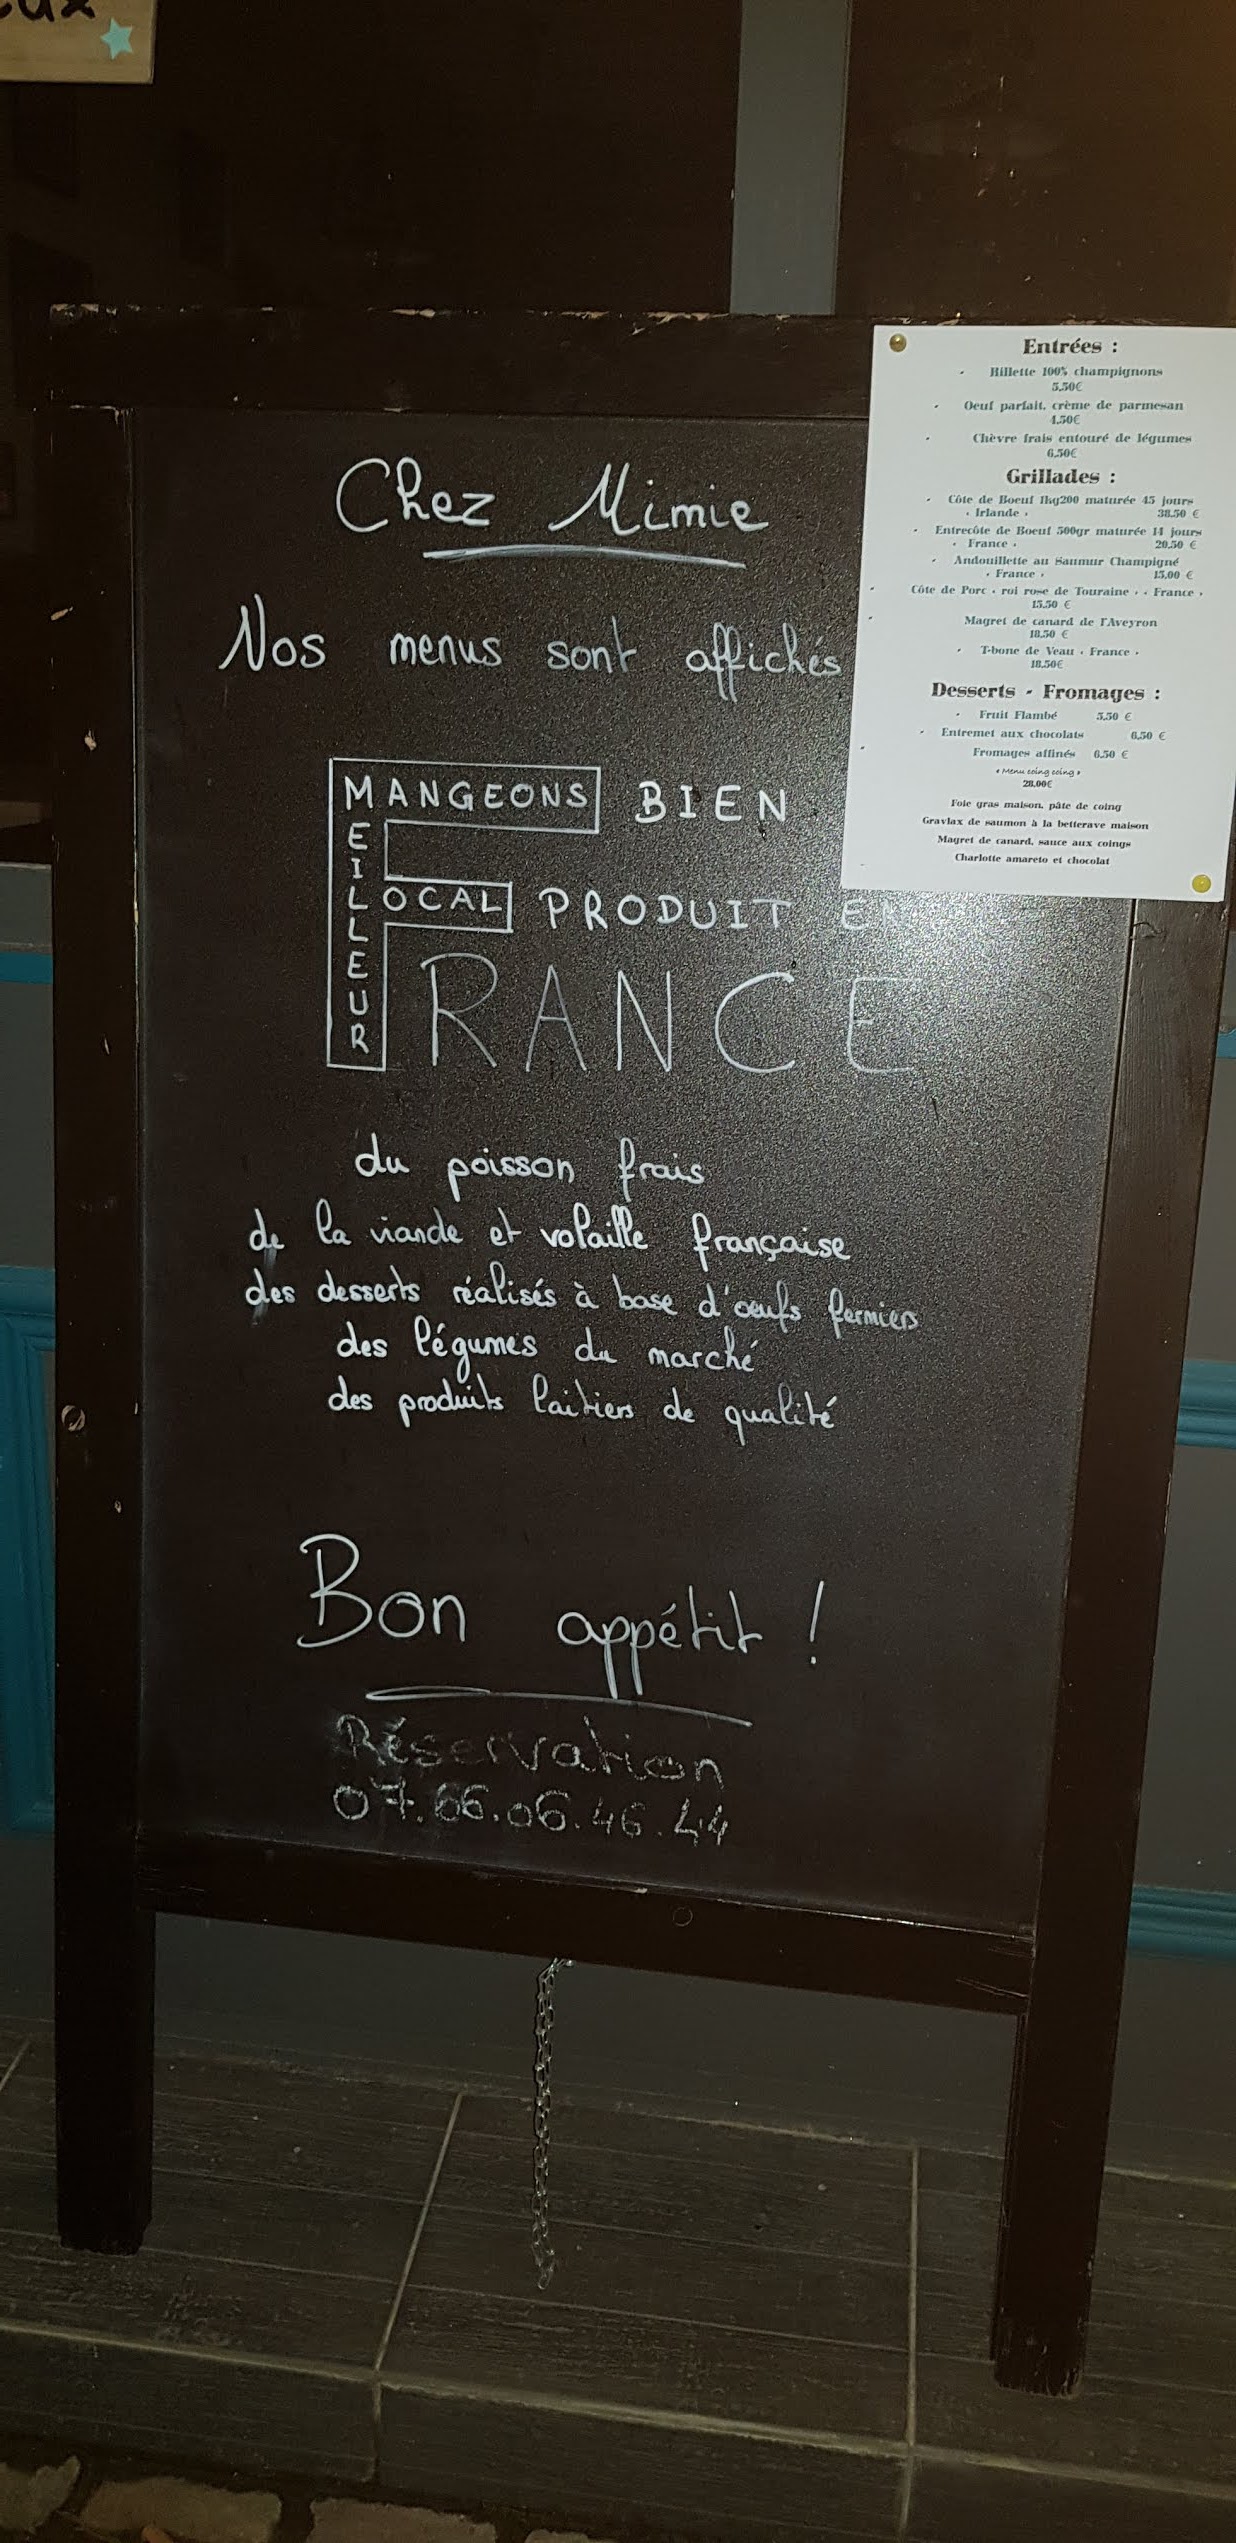 Chez Mimie
Nos menus sont affichés
MANGEONS BIEN
MEILLEUR
LOCAL PRODUIT EN
FRANCE
du poisson frais
de la viande et volaille française
des desserts réalisés à base d'œufs fermiers
des légumes du marché
des produits laitiers de qualité
Bon appétit !
Réservation
07.66.06.46.44
Entrées :
- Rillette 100% champignons
5,50€
- Oeuf parfait, crème de parmesan
4,50€
- Chèvre frais entouré de légumes
6,50€
Grillades :
- Côte de Boeuf 1kg200 maturée 45 jours
« Irlande » 38,50 €
- Entrecôte de Boeuf 500gr maturée 14 jours
« France » 20,50 €
- Andouillette au Saumur Champigné
« France » 15,00 €
- Côte de Porc « roi rose de Touraine » « France »
15,50 €
- Magret de canard de l'Aveyron
18,50 €
- T-bone de Veau « France »
18,50€
Desserts - Fromages :
- Fruit Flambé 5,50 €
- Entremet aux chocolats 6,50 €
- Fromages affinés 6,50 €
« Menu coing coing »
28,00€
Foie gras maison, pâte de coing
Gravlax de saumon à la betterave maison
Magret de canard, sauce aux coings
Charlotte amareto et chocolat